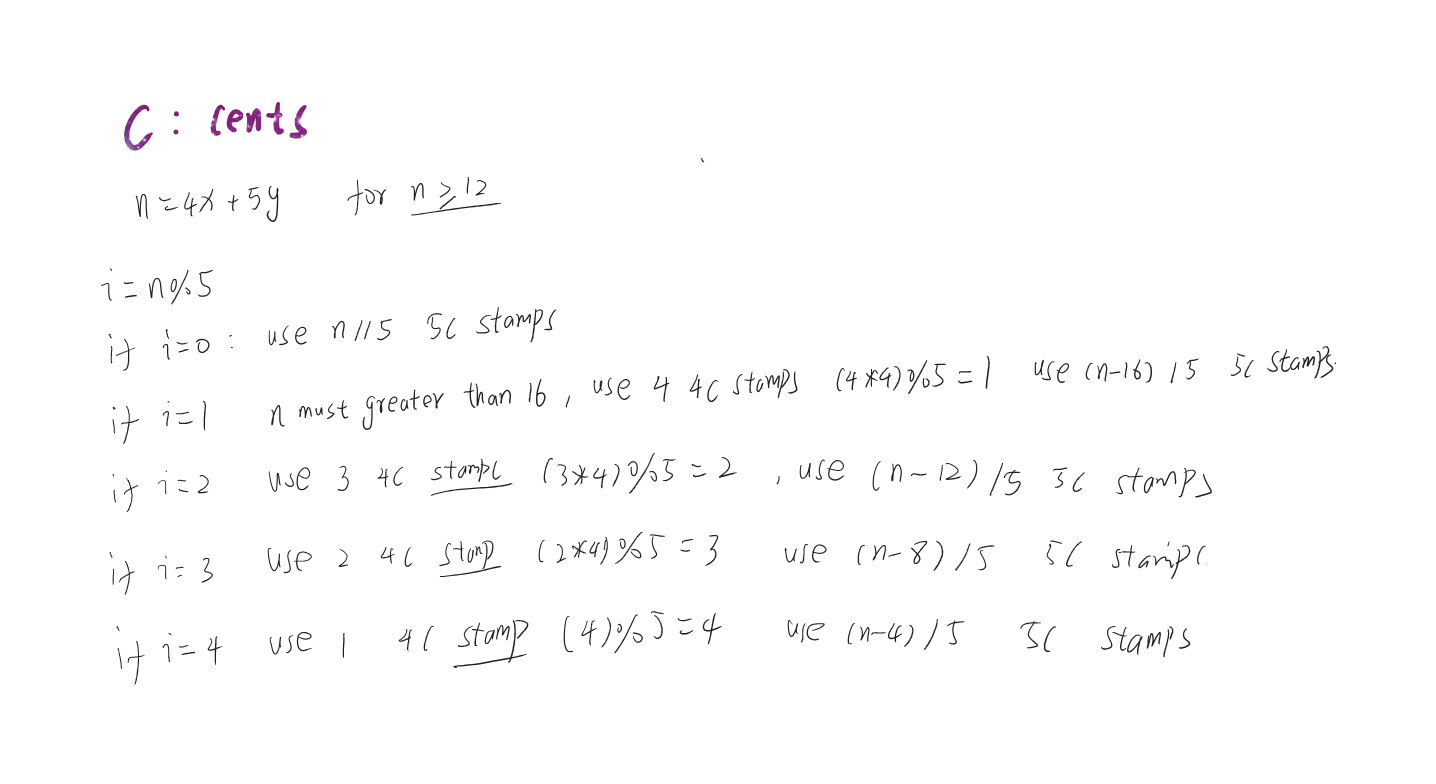 C : cents
n = 4x + 5y for n ≥ 12
i = n % 5
if i=0 : use n//5 5c stamps
if i=1 n must greater than 16 , use 4 4c stamps (4*4)%5 = 1 use (n-16) / 5 5c stamps
if i=2 use 3 4c stamps (3*4)%5 = 2 , use (n-12)/5 5c stamps
if i=3 use 2 4c stamp (2*4)%5 = 3 use (n-8)/5 5c stamps
if i=4 use 1 4c stamp (4)%5 = 4 use (n-4)/5 5c stamps